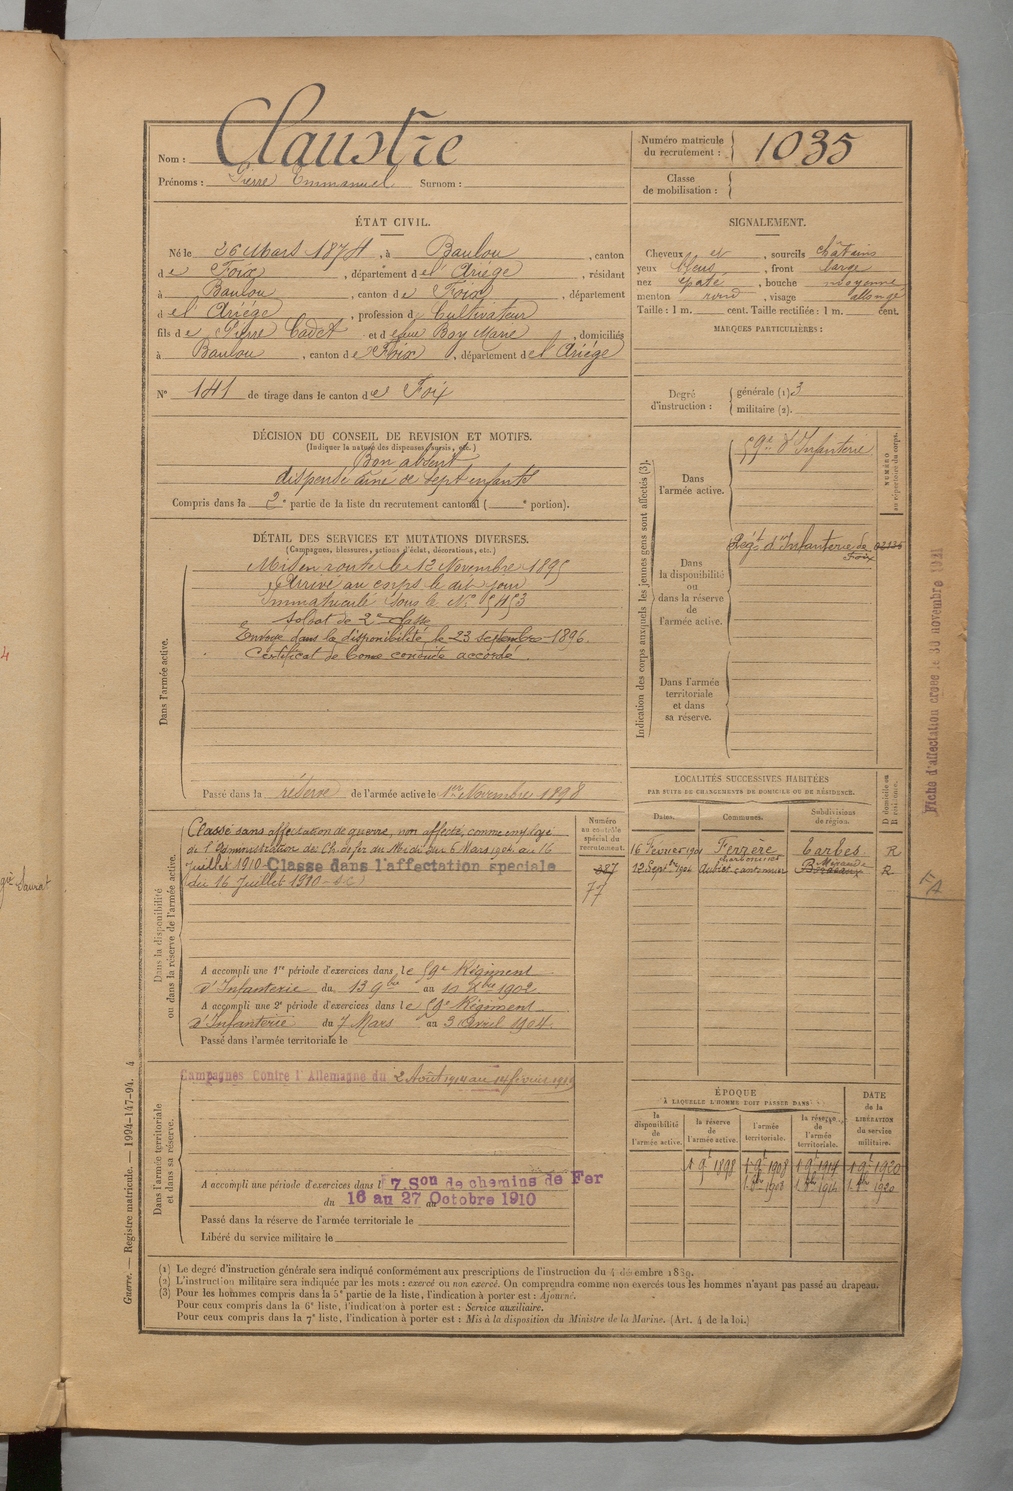 Nom : Claustre
Prénoms : Pierre Emmanuel Surnom :
Numéro matricule du recrutement : 1035
Classe de mobilisation :
ÉTAT CIVIL.
Né le 26 Mars 1874, à Baulou, canton
de Foix, département de l'Ariége, résidant
à Baulou, canton de Foix, département
de l'Ariége, profession de Cultivateur
fils de Pierre Cadet et de feue Boy Marie, domiciliés
à Baulou, canton de Foix, département de l'Ariége
N° 141 de tirage dans le canton de Foix
DÉCISION DU CONSEIL DE REVISION ET MOTIFS.
(Indiquer la nature des dispenses, sursis, etc.)
Bon absent
dispensé aîné de sept enfants
Compris dans la 2e partie de la liste du recrutement cantonal ( e portion).
DÉTAIL DES SERVICES ET MUTATIONS DIVERSES.
(Campagnes, blessures, actions d'éclat, décorations, etc.)
Dans l'armée active.
Mis en route le 12 Novembre 1895
Arrivé au corps le dit jour
Immatriculé sous le N° 5453
Soldat de 2e classe
Envoyé dans la disponibilité le 23 septembre 1896.
Certificat de bonne conduite accordé.
Passé dans la réserve de l'armée active le 1er Novembre 1898
Dans la disponibilité ou dans la réserve de l'armée active.
Classé sans affectation de guerre, non affecté, comme employé
de l'Administration des Ch. de fer du Midi du 6 Mars 1904 au 16
Juillet 1910 Classé dans l'affectation spéciale
(du 16 Juillet 1910
Numéro au contrôle spécial du recrutement.
77
A accompli une 1re période d'exercices dans le 59e Régiment
d'Infanterie du 13 9bre au 10 Xbre 1902
A accompli une 2e période d'exercices dans le 59e Régiment
d'Infanterie du 7 Mars au 3 Avril 1904.
Passé dans l'armée territoriale le
Dans l'armée territoriale et dans sa réserve.
Campagnes Contre l'Allemagne du 2 Août 1914 au 14 février 1919
A accompli une période d'exercices dans l 7. Son de chemins de Fer
du 16 au 27 Octobre 1910
Passé dans la réserve de l'armée territoriale le
Libéré du service militaire le
SIGNALEMENT.
Cheveux et, sourcils châtains
yeux bleus, front large
nez épaté, bouche moyenne
menton rond, visage allongé
Taille : 1 m. cent. Taille rectifiée : 1 m. cent.
MARQUES PARTICULIÈRES :
Degré d'instruction : générale (1). 3
militaire (2).
Indication des corps auxquels les jeunes gens sont affectés (3).
NUMÉRO au répertoire du corps.
Dans l'armée active.
59e d'Infanterie
Dans la disponibilité ou dans la réserve de l'armée active.
Régt d'Infanterie de Foix
Dans l'armée territoriale et dans sa réserve.
LOCALITÉS SUCCESSIVES HABITÉES
PAR SUITE DE CHANGEMENTS DE DOMICILE OU DE RÉSIDENCE.
Dates. Communes. Subdivisions de région. D domicile ou R résidence.
16 Février 1901 Ferrère Tarbes R
12 Septbre 1904 Aubiet cantonnier Mirande R
ÉPOQUE
À LAQUELLE L'HOMME DOIT PASSER DANS
la disponibilité de l'armée active. la réserve de l'armée active. l'armée territoriale. la réserve de l'armée territoriale. DATE de la LIBÉRATION du service militaire.
Fiche d'affectation créée le 30 novembre 1921
FA
(1) Le degré d'instruction générale sera indiqué conformément aux prescriptions de l'instruction du 4 décembre 1889.
(2) L'instruction militaire sera indiquée par les mots : exercé ou non exercé. On comprendra comme non exercés tous les hommes n'ayant pas passé au drapeau.
(3) Pour les hommes compris dans la 5e partie de la liste, l'indication à porter est : Ajourné.
Pour ceux compris dans la 6e liste, l'indication à porter est : Service auxiliaire.
Pour ceux compris dans la 7e liste, l'indication à porter est : Mis à la disposition du Ministre de la Marine. (Art. 4 de la loi.)
Guerre. — Registre matricule. — 1994-147-94. 4